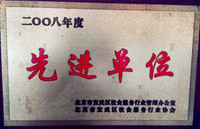 二〇〇八年度
先进单位
北京市宣武区饮食服务行业管理办公室
北京市宣武区饮食服务行业协会